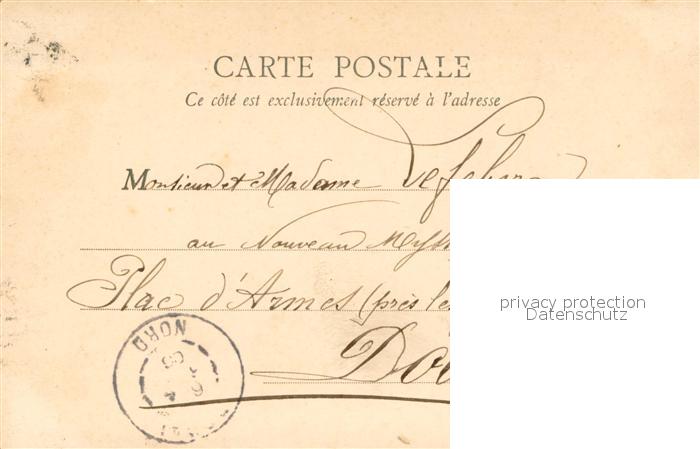 CARTE POSTALE
Ce côté est exclusivement réservé à l'adresse
Monsieur et Madame Lefebvre
au Nouveau
Place d'Armes (près
NORD
privacy protection
Datenschutz